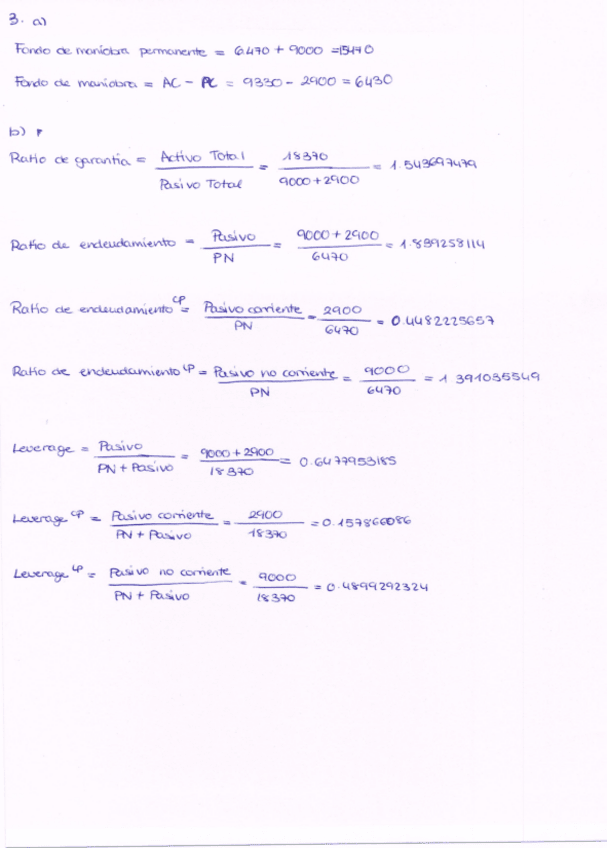 3. a)
Fondo de maniobra permanente = 6470 + 9000 = 15470
Fondo de maniobra = AC - PC = 9330 - 2900 = 6430
b)
Ratio de garantía = Activo Total / Pasivo Total = 18370 / 9000 + 2900 = 1.543697479
Ratio de endeudamiento = Pasivo / PN = 9000 + 2900 / 6470 = 1.839258114
Ratio de endeudamiento CP = Pasivo corriente / PN = 2900 / 6470 = 0.4482225657
Ratio de endeudamiento LP = Pasivo no corriente / PN = 9000 / 6470 = 1 391035549
Leverage = Pasivo / PN + Pasivo = 9000 + 2900 / 18370 = 0.6477953185
Leverage CP = Pasivo corriente / PN + Pasivo = 2900 / 18370 = 0.157866086
Leverage LP = Pasivo no corriente / PN + Pasivo = 9000 / 18370 = 0.4899292324